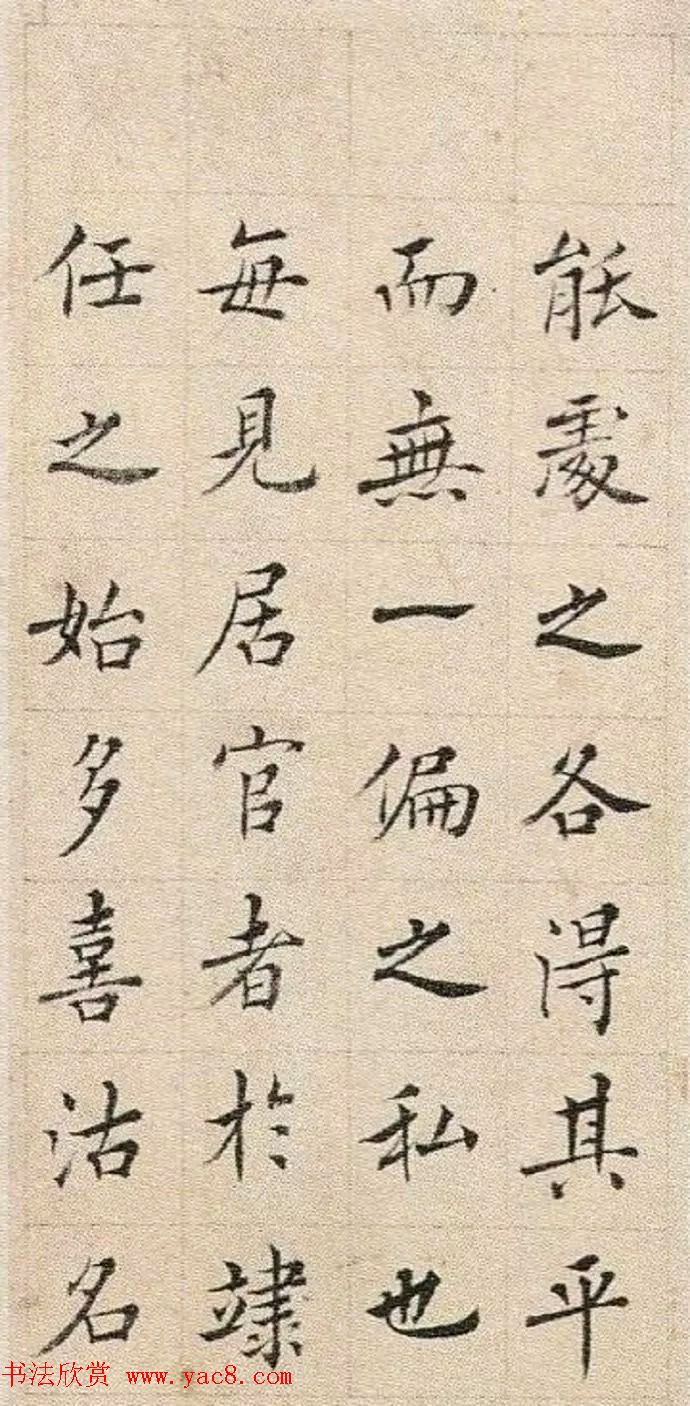 能處之各得其平
而無一偏之私也
每見居官者於竦
任之始多喜沽名
书法欣赏 www.yac8.com